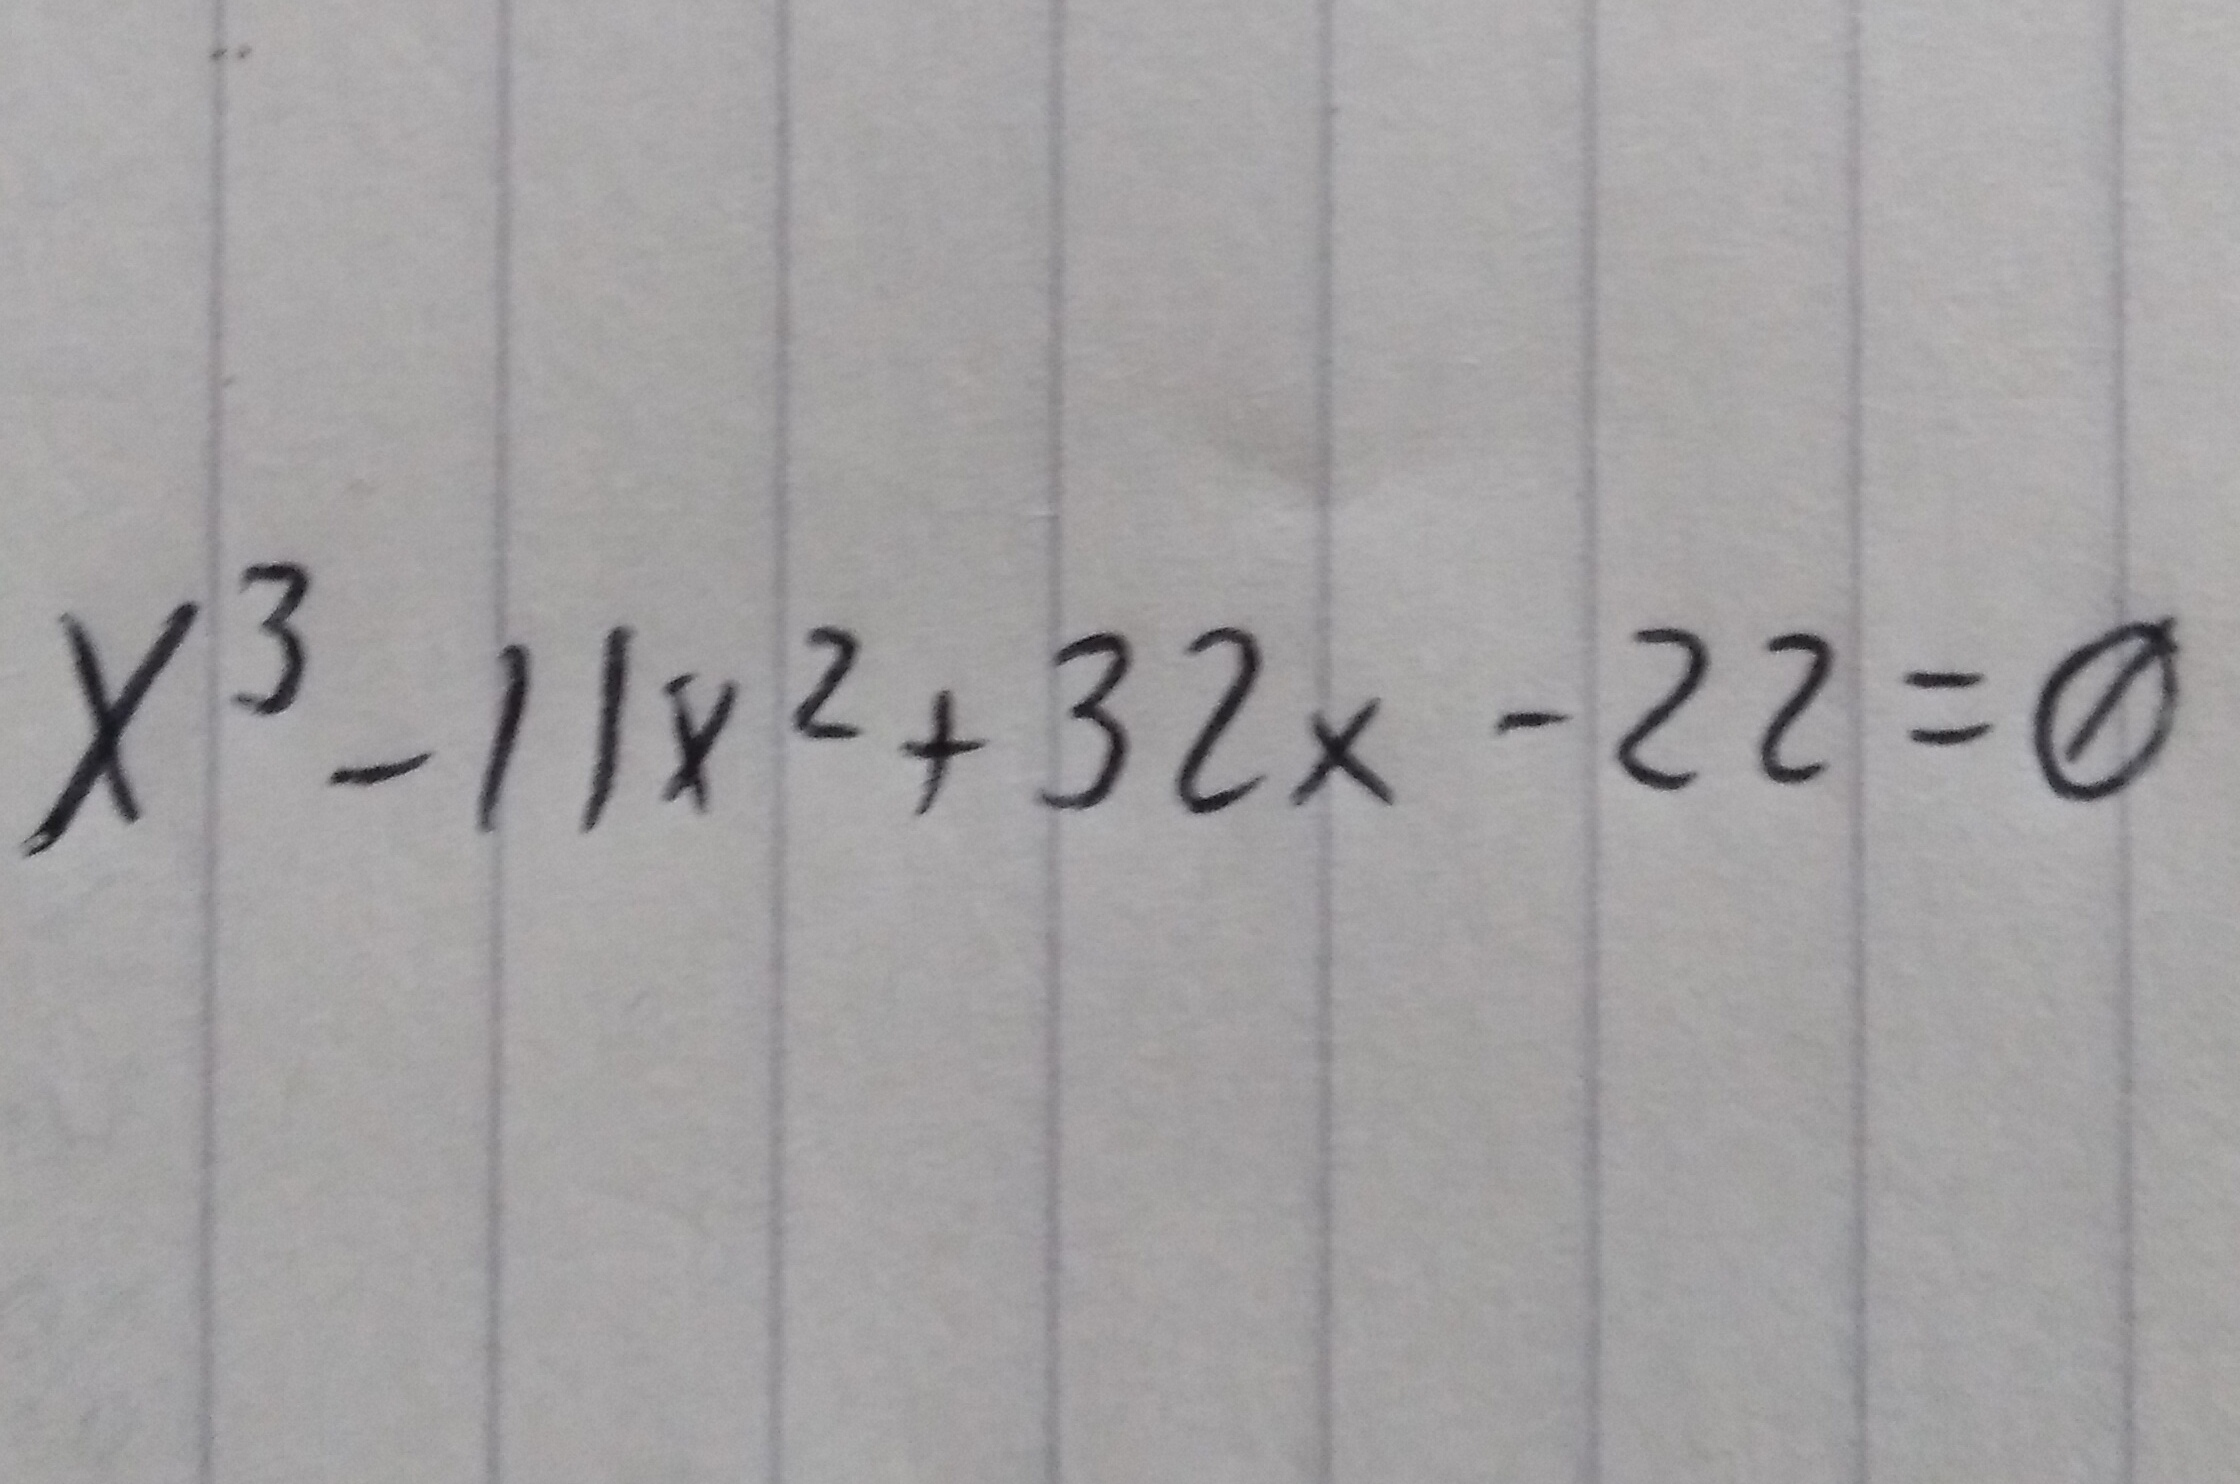 x³-11x²+32x-22=0